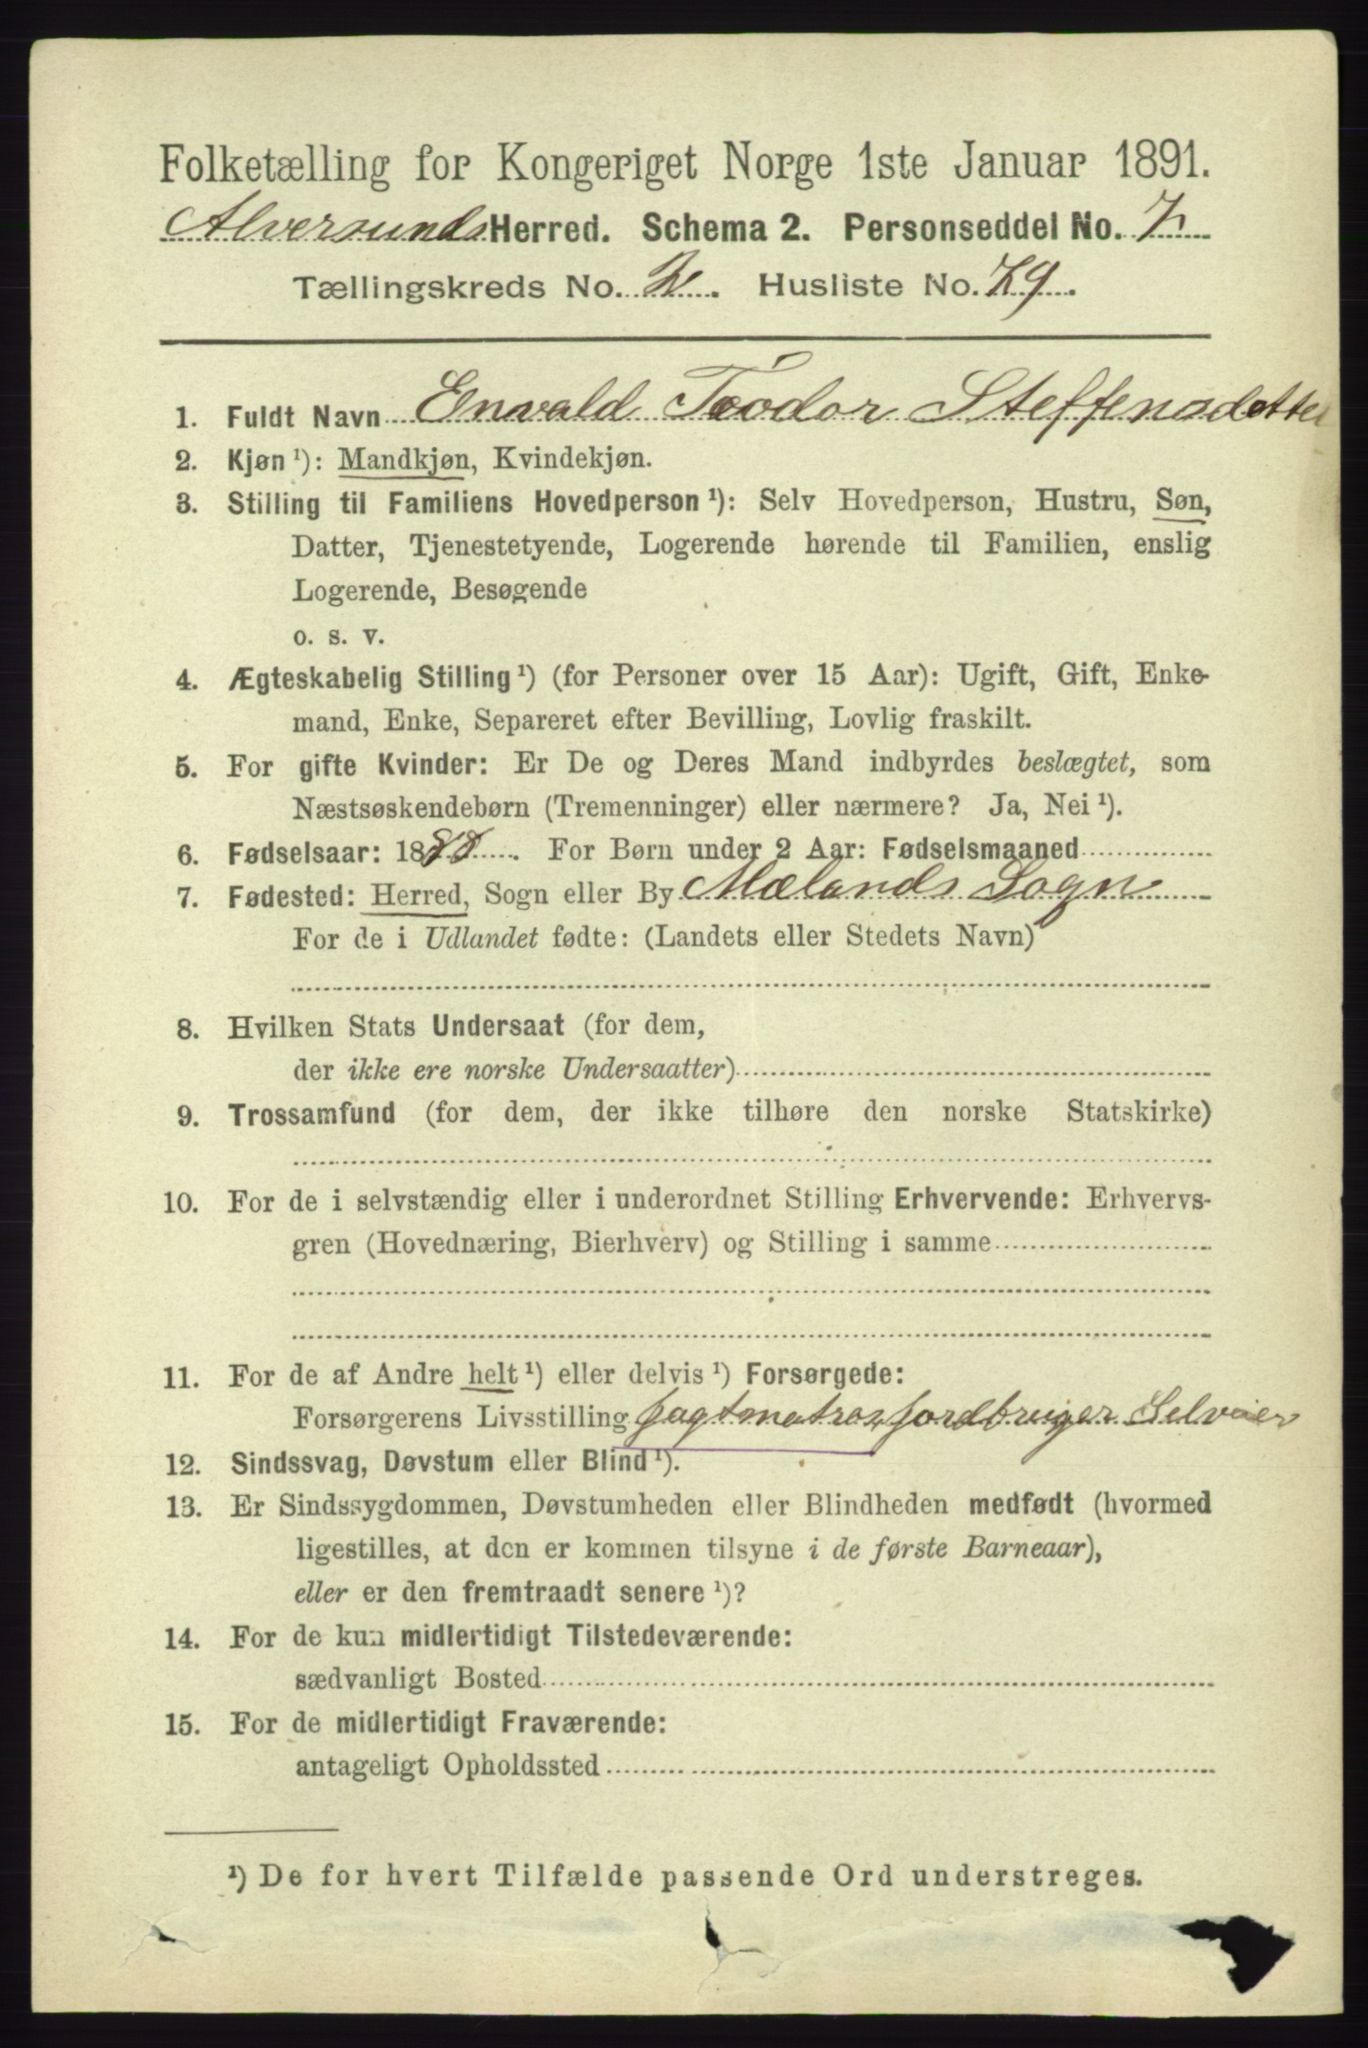 Folketælling for Kongeriget Norge 1ste Januar 1891.
Alversunds Herred. Schema 2. Personseddel No. 7
Tællingskreds No. 2. Husliste No. 79.
1. Fuldt Navn Envald Teodor Steffensdotter
2. Kjøn ¹): Mandkjøn, Kvindekjøn.
3. Stilling til Familiens Hovedperson ¹): Selv Hovedperson, Hustru, Søn,
Datter, Tjenestetyende, Logerende hørende til Familien, enslig
Logerende, Besøgende
o. s. v.
4. Ægteskabelig Stilling ¹) (for Personer over 15 Aar): Ugift, Gift, Enke-
mand, Enke, Separeret efter Bevilling, Lovlig fraskilt.
5. For gifte Kvinder: Er De og Deres Mand indbyrdes beslægtet, som
Næstsøskendebørn (Tremenninger) eller nærmere? Ja, Nei ¹).
6. Fødselsaar: 1888. For Børn under 2 Aar: Fødselsmaaned
7. Fødested: Herred, Sogn eller By Mælands Sogn
For de i Udlandet fødte: (Landets eller Stedets Navn)
8. Hvilken Stats Undersaat (for dem,
der ikke ere norske Undersaatter)
9. Trossamfund (for dem, der ikke tilhøre den norske Statskirke)
10. For de i selvstændig eller i underordnet Stilling Erhvervende: Erhvervs-
gren (Hovednæring, Bierhverv) og Stilling i samme
11. For de af Andre helt ¹) eller delvis ¹) Forsørgede:
Forsørgerens Livsstilling Jagtmatros, Jordbruger Selveier
12. Sindssvag, Døvstum eller Blind ¹).
13. Er Sindssygdommen, Døvstumheden eller Blindheden medfødt (hvormed
ligestilles, at den er kommen tilsyne i de første Barneaar),
eller er den fremtraadt senere ¹)?
14. For de kun midlertidigt Tilstedeværende:
sædvanligt Bosted
15. For de midlertidigt Fraværende:
antageligt Opholdssted
¹) De for hvert Tilfælde passende Ord understreges.